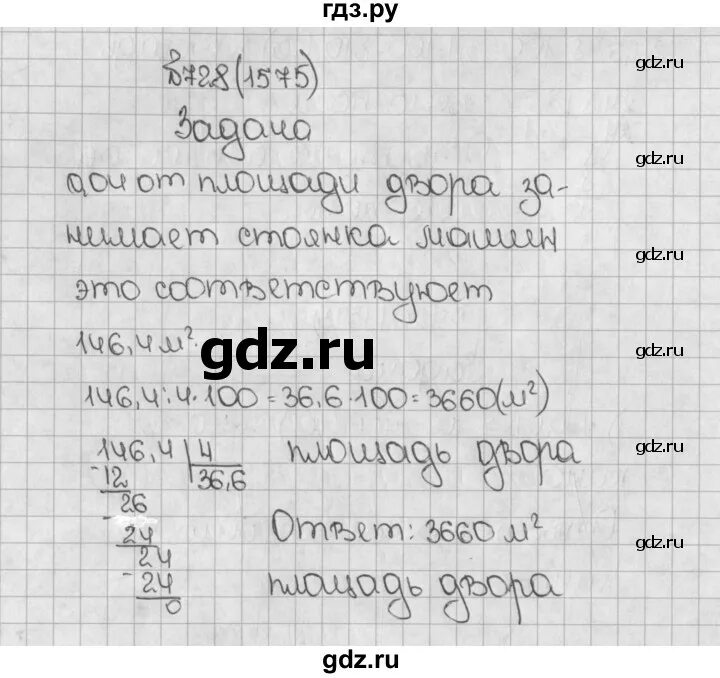 гдз.ру
gdz.ru
№728(1575)
Задача
gdz.ru
0,04 от площади двора за-
нимает стоянка машин
gdz.ru
это соответствует
146,4 м².
gdz.ru
gdz.ru
146,4:4·100=36,6·100=3660(м²)
146,4 | 4
-12 | 36,6
площадь двора
gdz.ru
-26
24
Ответ: 3660 м²
gdz.ru
-24
24
площадь двора
0
gdz.ru